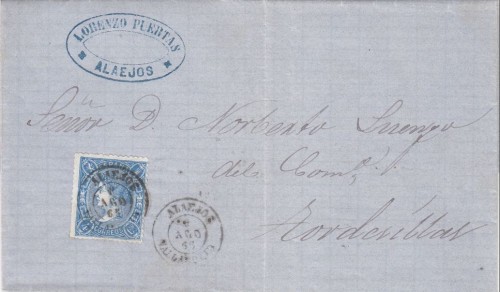 LORENZO PUERTAS
* ALAEJOS *
Señor D. Norberto
del Com.º
Tordesillas
ALAEJOS
AGO
65
CORREOS
ALAEJOS
AGO
65
VALLADOLID